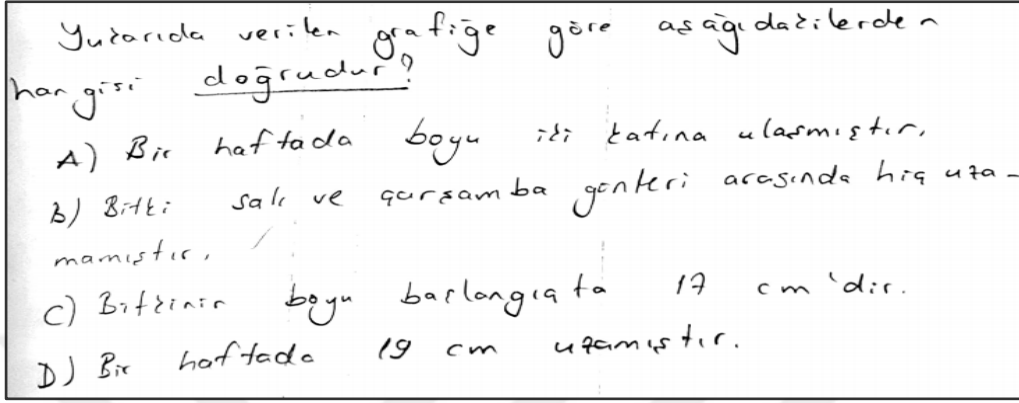 Yukarıda verilen grafiğe göre aşağıdakilerden
hangisi doğrudur?
A) Bir haftada boyu iki katına ulaşmıştır.
B) Bitki salı ve çarşamba günleri arasında hiç uza-
mamıştır.
C) Bitkinin boyu başlangıçta 17 cm'dir.
D) Bir haftada 19 cm uzamıştır.